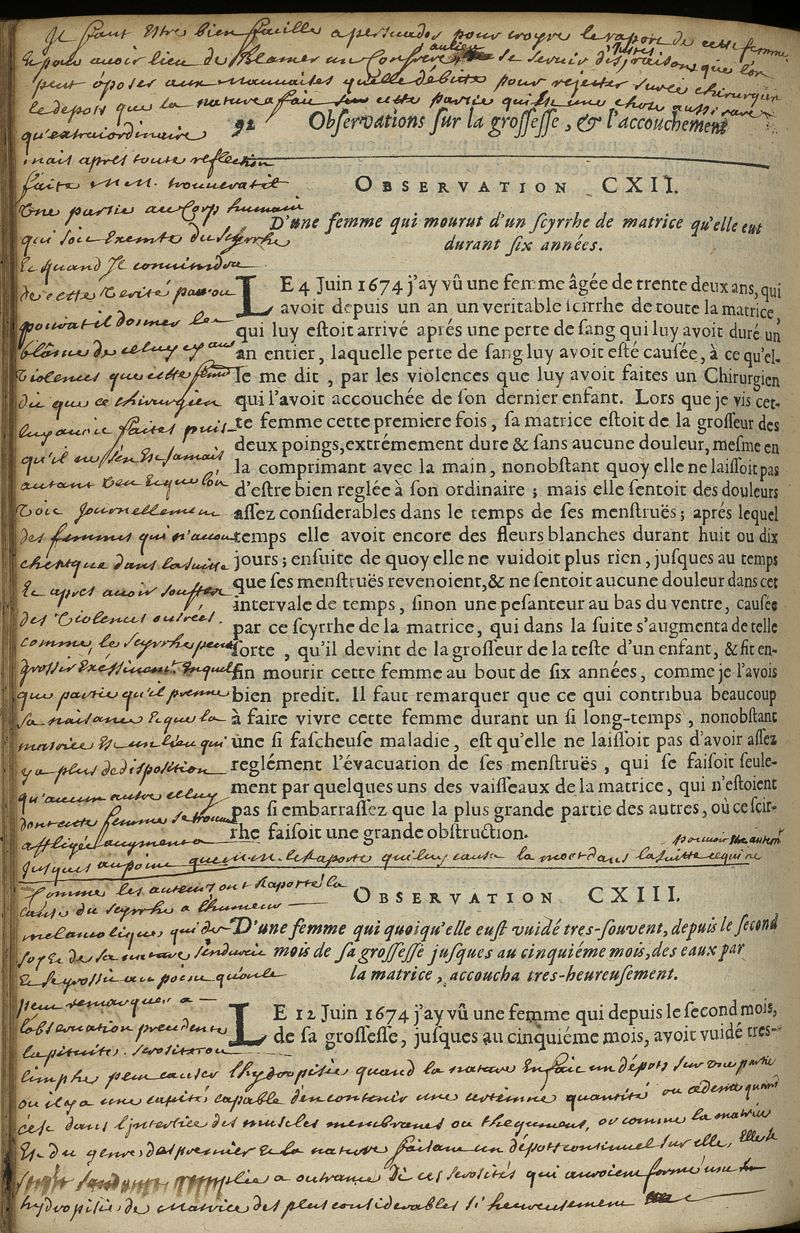 Il faut Estre bien facille a persuader pour croyre le raport de cette femme
Et pour avoir lieu de blamer un Confrere au lieu de se servir des justes raisons que l'on
peut oposer aux mauvaises quelle debite pour rejetter sur ce chirurgien
le depots que la nature a fait cette partie qui Est une chose aussi rare
qu'extraiordinaire
92 Observations sur la grossesse, & l'accouchement
mais apres toute reflection
faite M.M. trouveratil
Une partie au Corp humain
qui soit Exemte du scyrrhe
Et quand Je conviendra
de cette verité
pouvratil donner le
blâme de celuy cy aux
Violences que cette femme
dit que ce chirurgien
luy avoit faites puis-
qu'il ne s'en Est jamais
autant veu Et que l'on
voit Journellement
des femmes qui n'accou
chent que dans la suitte
Et apres avoir souffert
des Violences outrées.
comme le scyrrhe peut
grossir Exéssivemt. En quel
que partie qu'il prenne
sa naisance Et que la
matrice Est un lieu qui
y a plus de disposition
qu'aucun autre celluy
dont cette femme se trouva
affligée augmenta
Jusques au point que M.M. le Raporte qu'il luy causa la mort dans la suitte
OBSERVATION CXII.
D'une femme qui mourut d'un scyrrhe de matrice qu'elle eut
durant six années.
LE 4 Juin 1674 j'ay vû une femme âgée de trente deux ans, qui
avoit depuis un an un veritable scirrhe de toute la matrice,
qui luy estoit arrivé aprés une perte de sang qui luy avoit duré un
an entier, laquelle perte de sang luy avoit esté causée, à ce qu'el-
le me dit, par les violences que luy avoit faites un Chirurgien
qui l'avoit accouchée de son dernier enfant. Lors que je vis cet-
te femme cette premiere fois, sa matrice estoit de la grosseur des
deux poings, extrémement dure & sans aucune douleur, mesme en
la comprimant avec la main, nonobstant quoy elle ne laissoit pas
d'estre bien reglée à son ordinaire ; mais elle sentoit des douleurs
assez considerables dans le temps de ses menstruës ; aprés lequel
temps elle avoit encore des fleurs blanches durant huit ou dix
jours ; ensuite de quoy elle ne vuidoit plus rien, jusques au temps
que ses menstruës revenoient, & ne sentoit aucune douleur dans cet
intervale de temps, sinon une pesanteur au bas du ventre, causée
par ce scyrrhe de la matrice, qui dans la suite s'augmenta de telle
sorte, qu'il devint de la grosseur de la teste d'un enfant, & fit en-
fin mourir cette femme au bout de six années, comme je l'avois
bien predit. Il faut remarquer que ce qui contribua beaucoup
à faire vivre cette femme durant un si long-temps, nonobstant
une si fascheuse maladie, est qu'elle ne laissoit pas d'avoir assez
reglément l'évacuation de ses menstruës, qui se faisoit seule-
ment par quelques uns des vaisseaux de la matrice, qui n'estoient
pas si embarrassez que la plus grande partie des autres, où ce scir-
rhe faisoit une grande obstruction.
Comme les auteurs ont Raporté la
cause du scyrrhe a l'humeur
melancolique, qui de
soy Et de sa nature s'endurcit
Et se grossit au point qu'on le
peut remarquer a
lobservation precedente
la pituite. serosité ou
limphe peut causer l'hydropisie quand la nature En fait un depots sur une partie
ou il y a une capité capable d'en contenir une certeinne quantité ou œdeme quand
c'est dans l'jnterstice des muscles membranes ou thegumens, or comme la matrice
Est du genre des premier Et la nature faisant un depôtt continuel sur elle, Elle
plée a outrance de ces serosités qui auroient formé une
hydropisie de Matrice des plus considerables si heureusement
OBSERVATION CXIII.
D'une femme qui quoiqu'elle eust vuidé tres-souvent, depuis le second
mois de sa grossesse jusques au cinquiéme mois, des eaux par
la matrice, accoucha tres-heureusement.
LE 12 Juin 1674 j'ay vû une femme qui depuis le second mois,
de sa grossesse, jusques au cinquiéme mois, avoit vuidé tres-